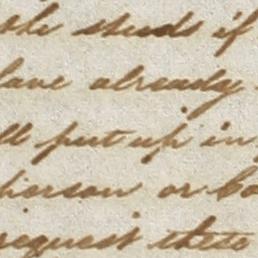 the studs if
have already
ll put up in
person or bo
request these